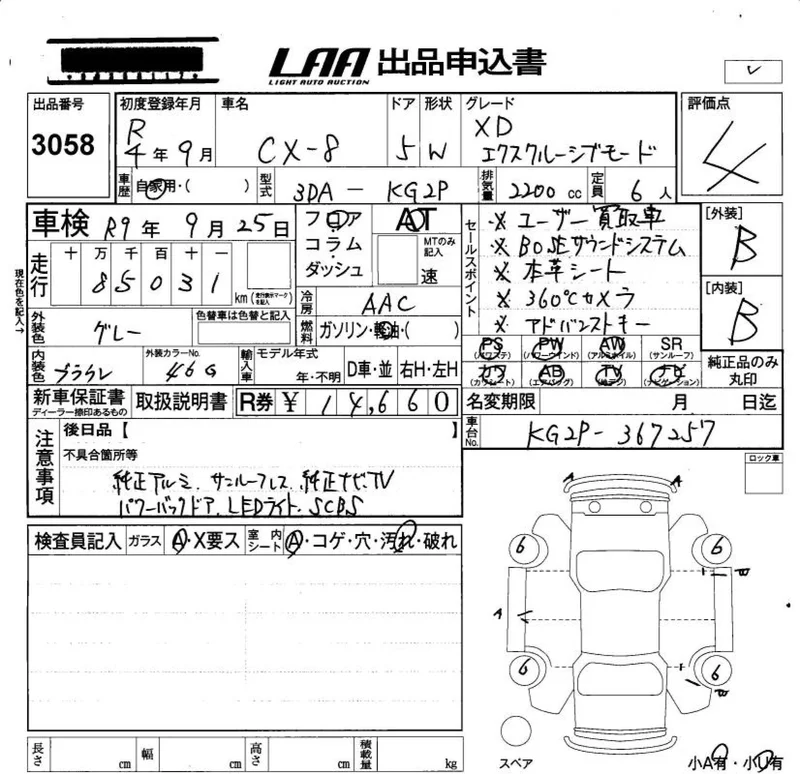 LAA 出品申込書
LIGHT AUTO AUCTION
出品番号 初度登録年月 車名 ドア 形状 グレード 評価点
3058 R 4年 9月 CX-8 5 W XD エクスクルーシブモード 4
車歴 自家用・( ) 型式 3DA - KG2P 排気量 2200 cc 定員 6 人
車検 R9 年 9 月 25 日
フロア コラム・ダッシュ
AT MTのみ記入 速
セールスポイント
※ ユーザー買取車
※ BOSEサウンドシステム
※ 本革シート
※ 360℃カメラ
※ アドバンストキー
[外装] B
[内装] B
現在色を記入→
走行 十 万 千 百 十 一
8 5 0 3 1 km (走行表示マークを記入)
冷房 AAC
外装色 グレー 色替車は色替と記入
燃料 ガソリン・軽油・( )
内装色 ブラウン 外装カラーNo. 46G
輸入車 モデル年式 年・不明 D車・並 右H・左H
PS (パワステ) PW (パワーウインド) AW (アルミホイル) SR (サンルーフ)
カワ (カワシート) AB (エアバッグ) TV (地デジ) ナビ (ナビゲーション)
純正品のみ丸印
新車保証書 ディーラー捺印あるもの 取扱説明書 R券 ¥ 14,660
名変期限 月 日迄
車台No. KG2P-367257
注意事項
後日品【 】
不具合箇所等
純正アルミ. サンルーフレス. 純正ナビTV
パワーバックドア. LEDライト. SCBS
ロック車
検査員記入 ガラス A・X要ス 室内シート A・コゲ・穴・汚れ・破れ
A A
6 6
A
6 6
スペア
小A有・小U有
長さ cm 幅 cm 高さ cm 積載量 kg